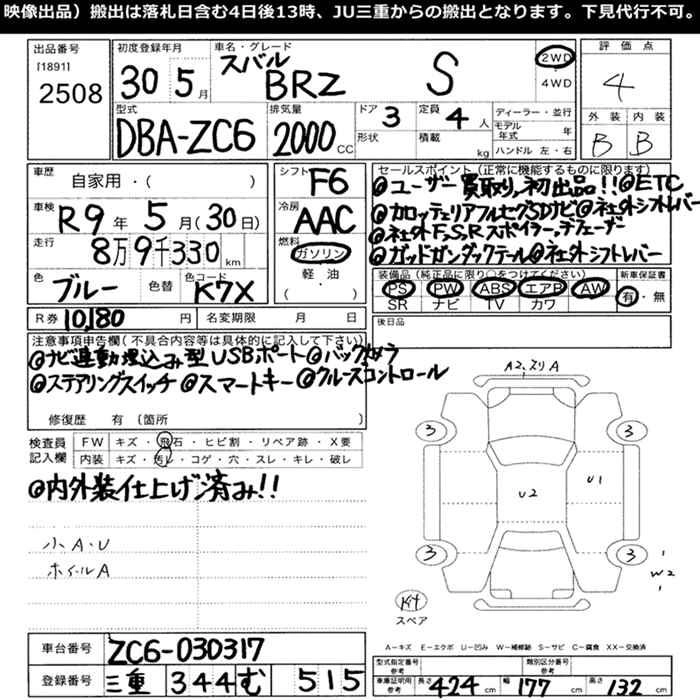 映像出品）搬出は落札日含む4日後13時、JU三重からの搬出となります。下見代行不可。
出品番号
[1891]
2508
初度登録年月
30 5月
車名・グレード
スバル
BRZ S
2WD
・
4WD
評価点
4
外装 内装
B B
型式
DBA-ZC6
排気量
2000 CC
ドア 3
形状
定員 4 人
積載 kg
ディーラー・並行
モデル年式 年
ハンドル 左・右
車歴
自家用・( )
車検
R9年 5月(30日)
走行
8万9千330km
色
ブルー
色替
色コード
K7X
シフト
F6
冷房
AAC
燃料
ガソリン
軽・油
( )
セールスポイント(正常に機能するものに限ります)
@ユーザー買取り、初出品!!@ETC
@カロッテェリアフルセグSDナビ@社外シフトレバー
@社外F.S.Rスポイラー、デフューザー
@ガッドガンダックテール@社外シフトレバー
装備品(純正品に限り○をつけてください)
PS PW ABS エアB AW
SR ナビ TV カワ
新車保証書
有・無
R券 10,180 円
名変期限 月 日
後日品
注意事項申告欄(不具合内容等は具体的に記入して下さい)
@ナビ連動埋込み型USBポート@バックカメラ
@ステアリングスイッチ @スマートキー @クルーズコントロール
修復歴 有 (箇所 )
検査員
記入欄
FW キズ・飛石・ヒビ割・リペア跡・X要
内装 キズ・汚レ・コゲ・穴・スレ・キレ・破レ
@内外装仕上げ済み!!
小A・U
ホイールA
A2.スリA
3 3
U2 U1
3 3
W2
キット
スペア
A-キズ E-エクボ U-凹み W-補修跡 S-サビ C-腐食 XX-交換済
車台番号 ZC6-030317
登録番号 三重 344む 515
型式指定番号
参考
類別区分番号
参考
車庫証明用
参考
長さ 424 cm 幅 177 cm 高さ 132 cm